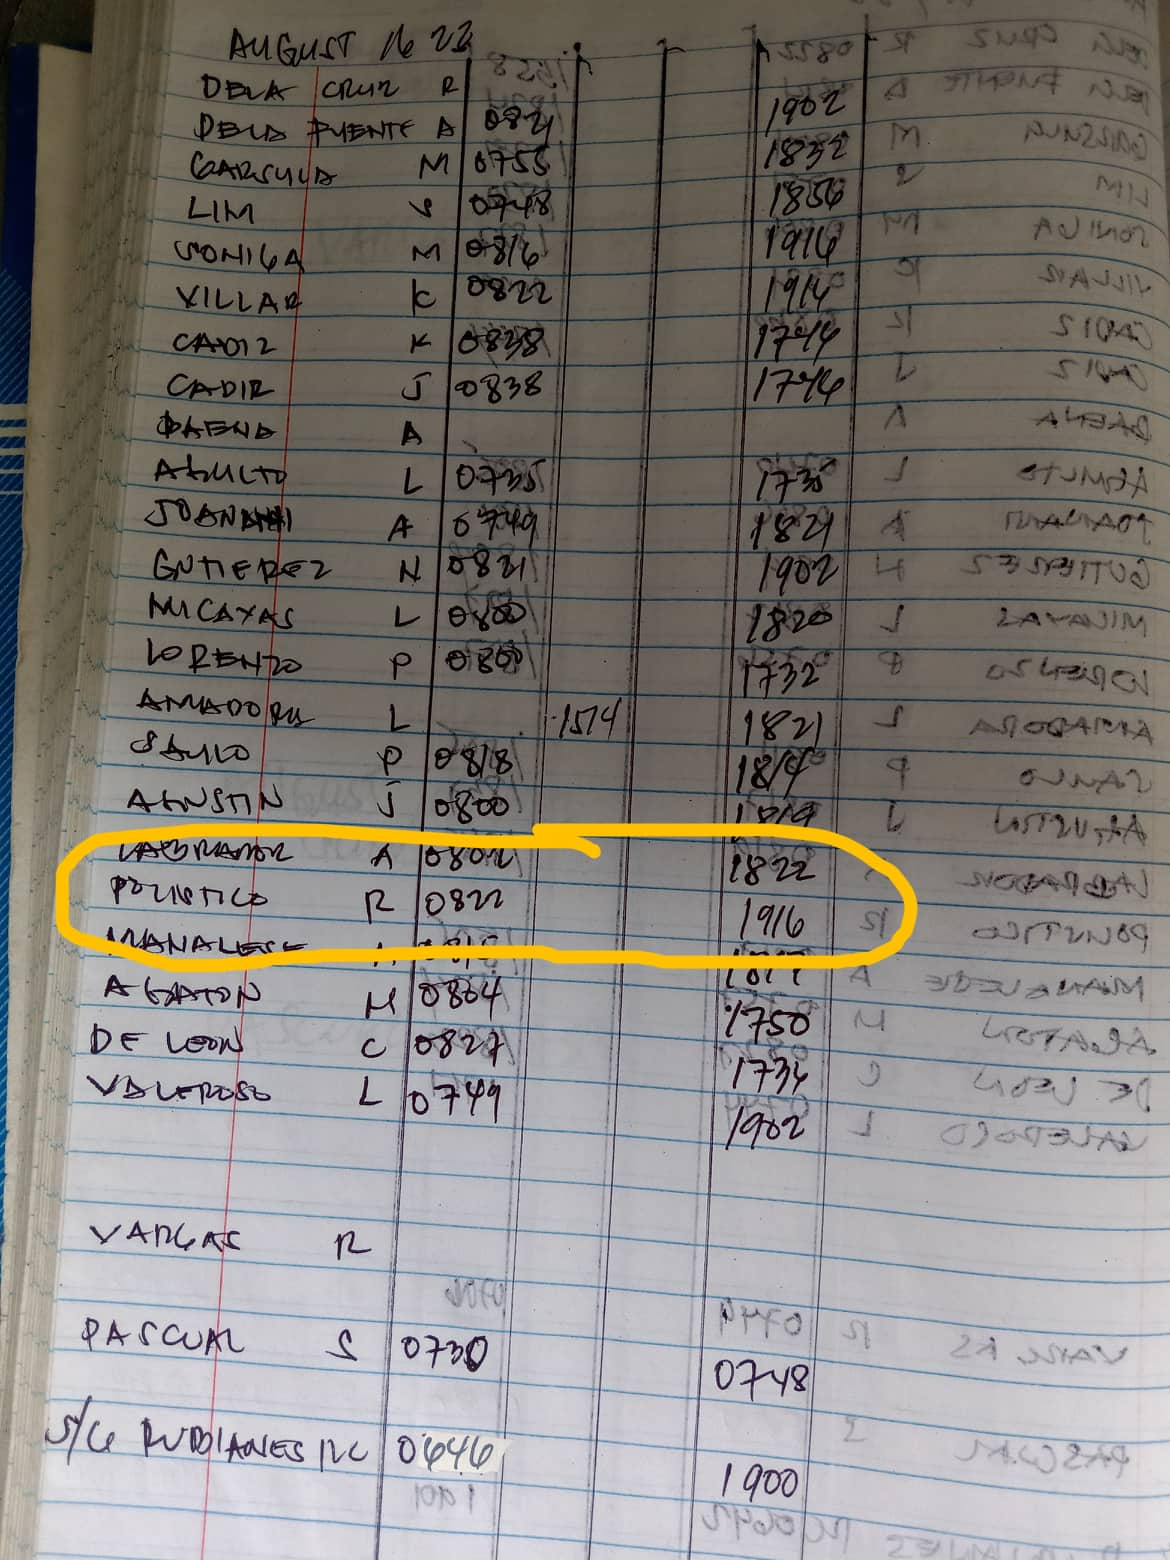 AUGUST 16 22
DELA CRUZ R
DELA FUENTE A 0821 1902
GARSULA M 0755 1832
LIM S 0748 1856
SONIGA M 0816 1916
VILLAR K 0822 1916
CADIZ K 0838 1744
CADIR J 0838 1746
BAENA A
AGULTO L 0735 1735
A 0749 1821
GUTIEREZ N 0821 1902
MICAYAS L 0800 1820
LORENZO P 0800 1732
AMADORA L 1514 1821
SAULO P 0818 1814
AGUSTIN J 0800 1819
LABRADOR A 0802 1822
POLISTICO R 0822 1916
MANALESE A
AGATON M 0804 1750
DE LEON C 0827 1734
VALEROSO L 0749 1902
VARGAS R
PASCUAL S 0730 0748
S/G RUBIANES RC 0646 1900